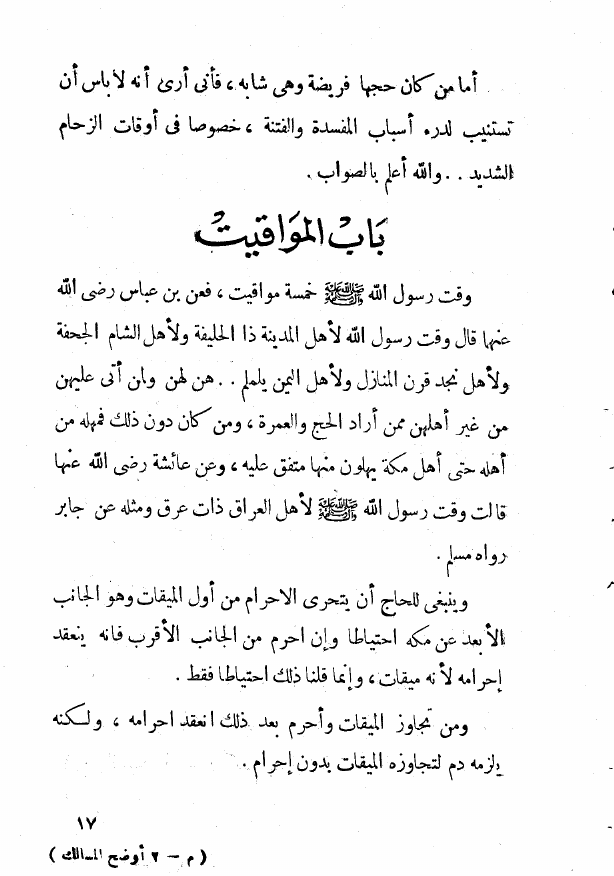 أما من كان حجها فريضة وهى شابه ، فأنى أرى أنه لا باس أن
تستنيب لدرء أسباب المفسدة والفتنة ، خصوصا فى أوقات الزحام
الشديد . . والله أعلم بالصواب .
بَابُ المَوَاقيتْ
وقت رسول الله ﷺ خمسة مواقيت ، فعن بن عباس رضى الله
عنهما قال وقت رسول الله لأهل المدينة ذا الحليفة ولأهل الشام الجحفة
ولأهل نجد قرن المنازل ولأهل اليمن يلملم . . هن لهن ولمن أتى عليهن
من غير أهلهن ممن أراد الحج والعمرة ، ومن كان دون ذلك فمهله من
أهله حتى أهل مكة يهلون منها متفق عليه ، وعن عائشة رضى الله عنها
قالت وقت رسول الله ﷺ لأهل العراق ذات عرق ومثله عن جابر
رواه مسلم .
وينبغى للحاج أن يتحرى الاحرام من أول الميقات وهو الجانب
الأبعد عن مكه احتياطا وإن احرم من الجانب الأقرب فانه ينعقد
إحرامه لأنه ميقات ، وإنما قلنا ذلك احتياطا فقط .
ومن تجاوز الميقات وأحرم بعد ذلك انعقد احرامه ، ولكنه
يلزمه دم لتجاوزه الميقات بدون إحرام .
١٧
( م – ٢ أوضح المسالك )